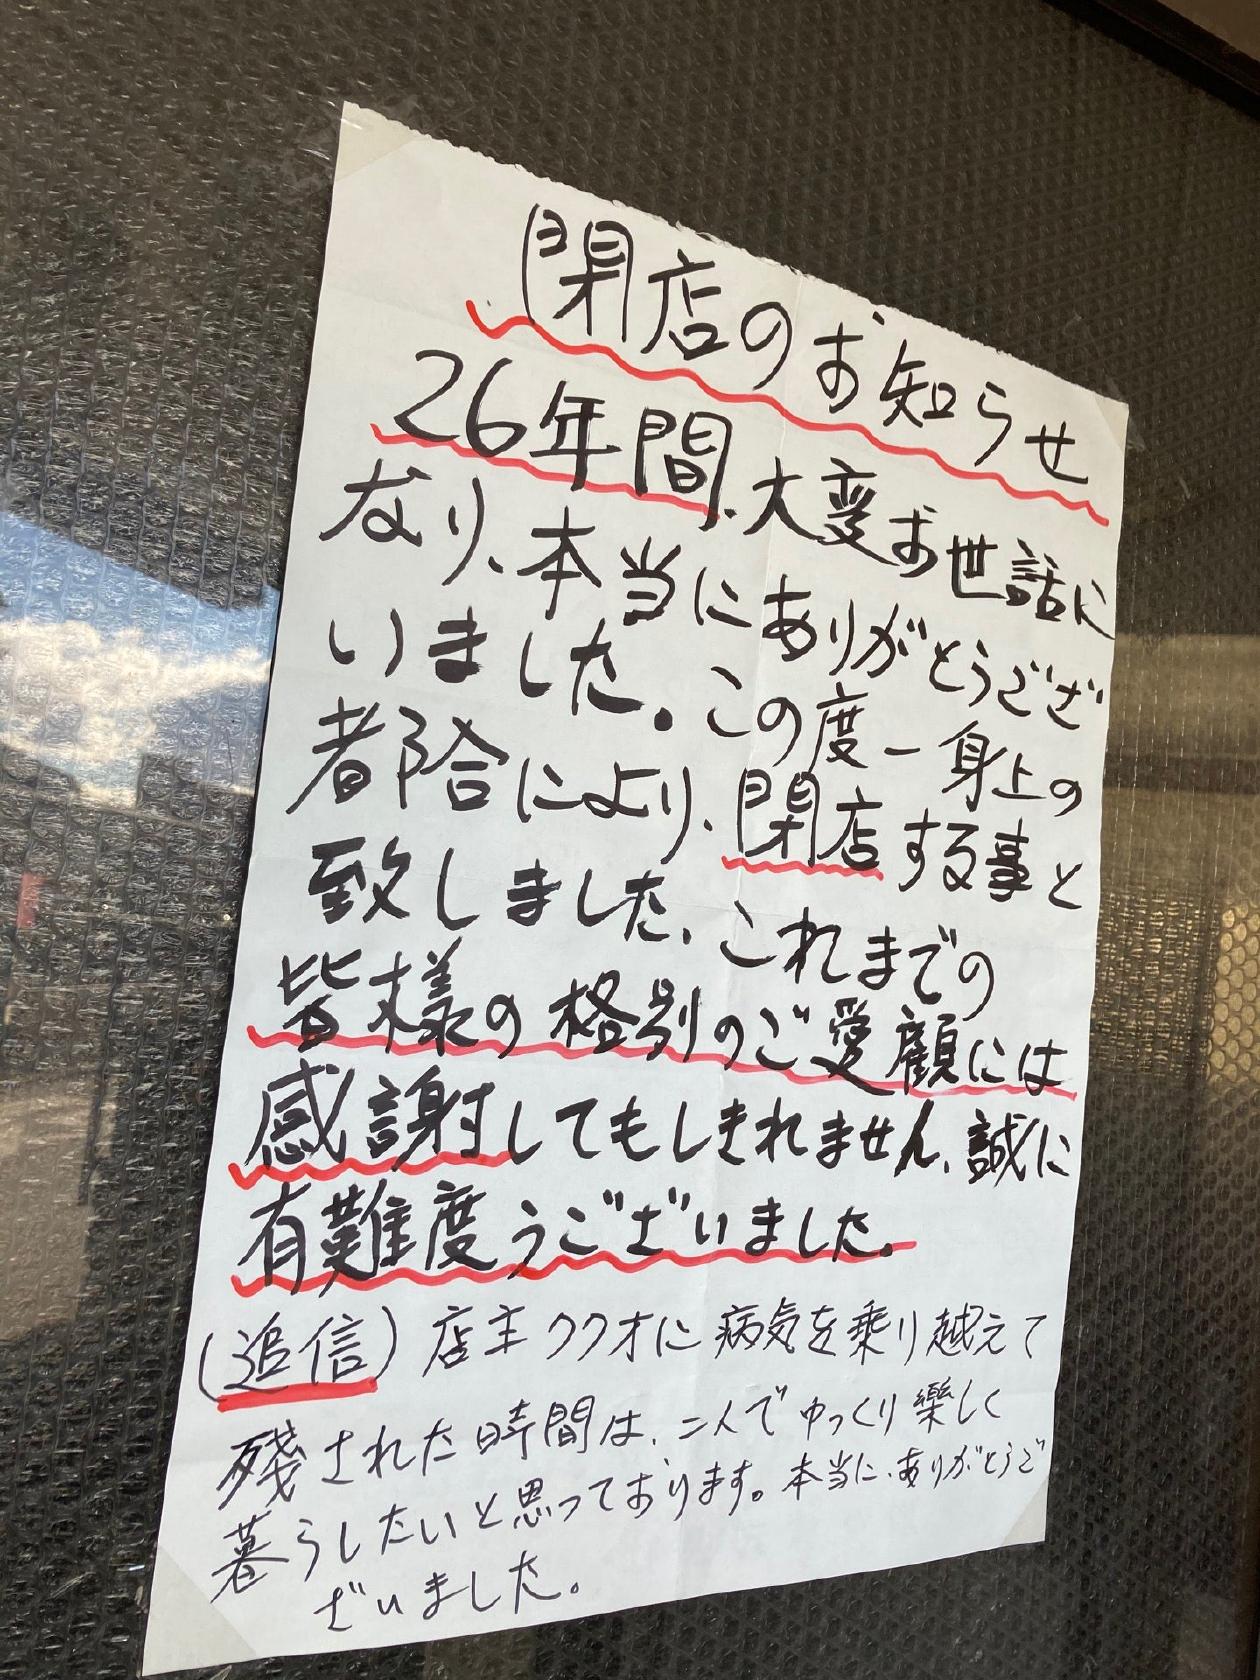 閉店のお知らせ
26年間、大変お世話に
なり、本当にありがとうござ
いました。この度一身上の
都合により、閉店する事と
致しました。これまでの
皆様の格別のご愛顧には
感謝してもしきれません、誠に
有難度うございました。
(追信)店主クフオに病気を乗り越えて
残された時間は、二人でゆっくり楽しく
暮らしたいと思っております。本当に、ありがとうご
ざいました。